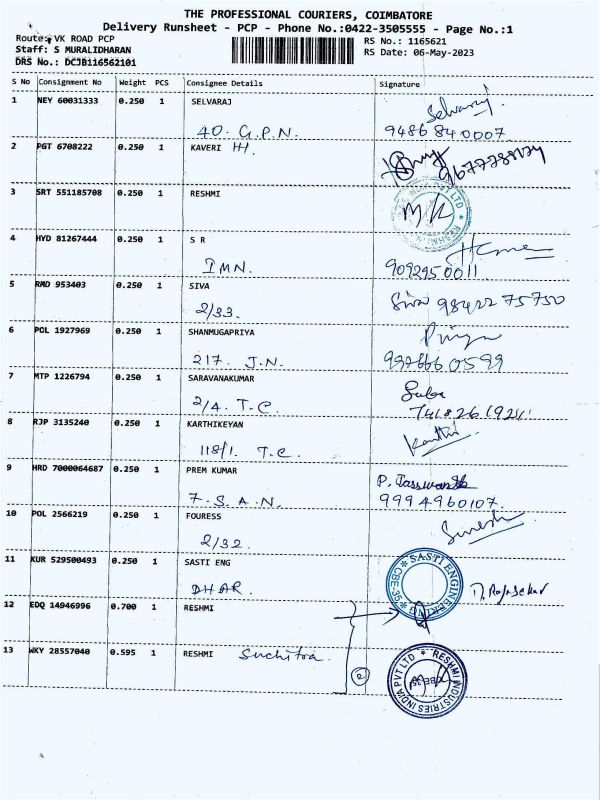 THE PROFESSIONAL COURIERS, COIMBATORE
Delivery Runsheet - PCP - Phone No.:0422-3505555 - Page No.:1
Route: VK ROAD PCP
Staff: S MURALIDHARAN
DRS No.: DCJB116562101
RS No.: 1165621
RS Date: 06-May-2023
S No Consignment No Weight PCS Consignee Details Signature
1 NEY 60031333 0.250 1 SELVARAJ Selvaraj
40. G.P.N. 9486840007
2 PGT 6708222 0.250 1 KAVERI HH.
3 SRT 551185708 0.250 1 RESHMI
4 HYD 81267444 0.250 1 S R
IMN. 9092950011
5 RMD 953403 0.250 1 SIVA Siva 98422 75750
2/33.
6 POL 1927969 0.250 1 SHANMUGAPRIYA Priya
217. J.N.
7 MTP 1226794 0.250 1 SARAVANAKUMAR
2/4. T.C.
8 RJP 3135240 0.250 1 KARTHIKEYAN Karthi
118/1. T.C.
9 HRD 7000064687 0.250 1 PREM KUMAR
7. S.A.N. 9994960107
10 POL 2566219 0.250 1 FOURESS Suresh
2/32.
11 KUR 529500493 0.250 1 SASTI ENG
DHAR
SASTI ENGINEERING CBE-35
12 EDQ 14946996 0.700 1 RESHMI
13 WKY 28557040 0.595 1 RESHMI Suchitra
RESHMI INDUSTRIES INDIA PVT LTD
CBE-35